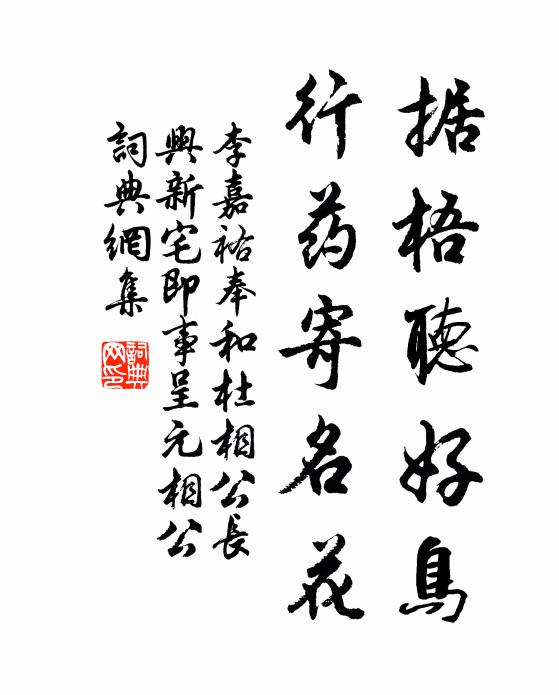 据梧聽好鳥
行药寄名花
李嘉祐奉和杜相公長
興新宅即事呈元相公
詞典網集
詞典网印